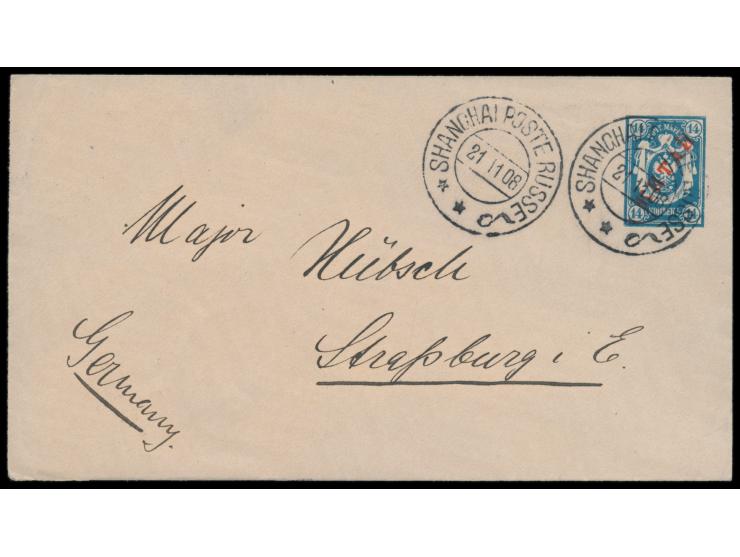 SHANGHAI POSTE RUSSE
21 11 08
SHANGHAI
SSE
14 14
КИТАЙ
14 14
Major Hübsch
Straßburg i E.
Germany.